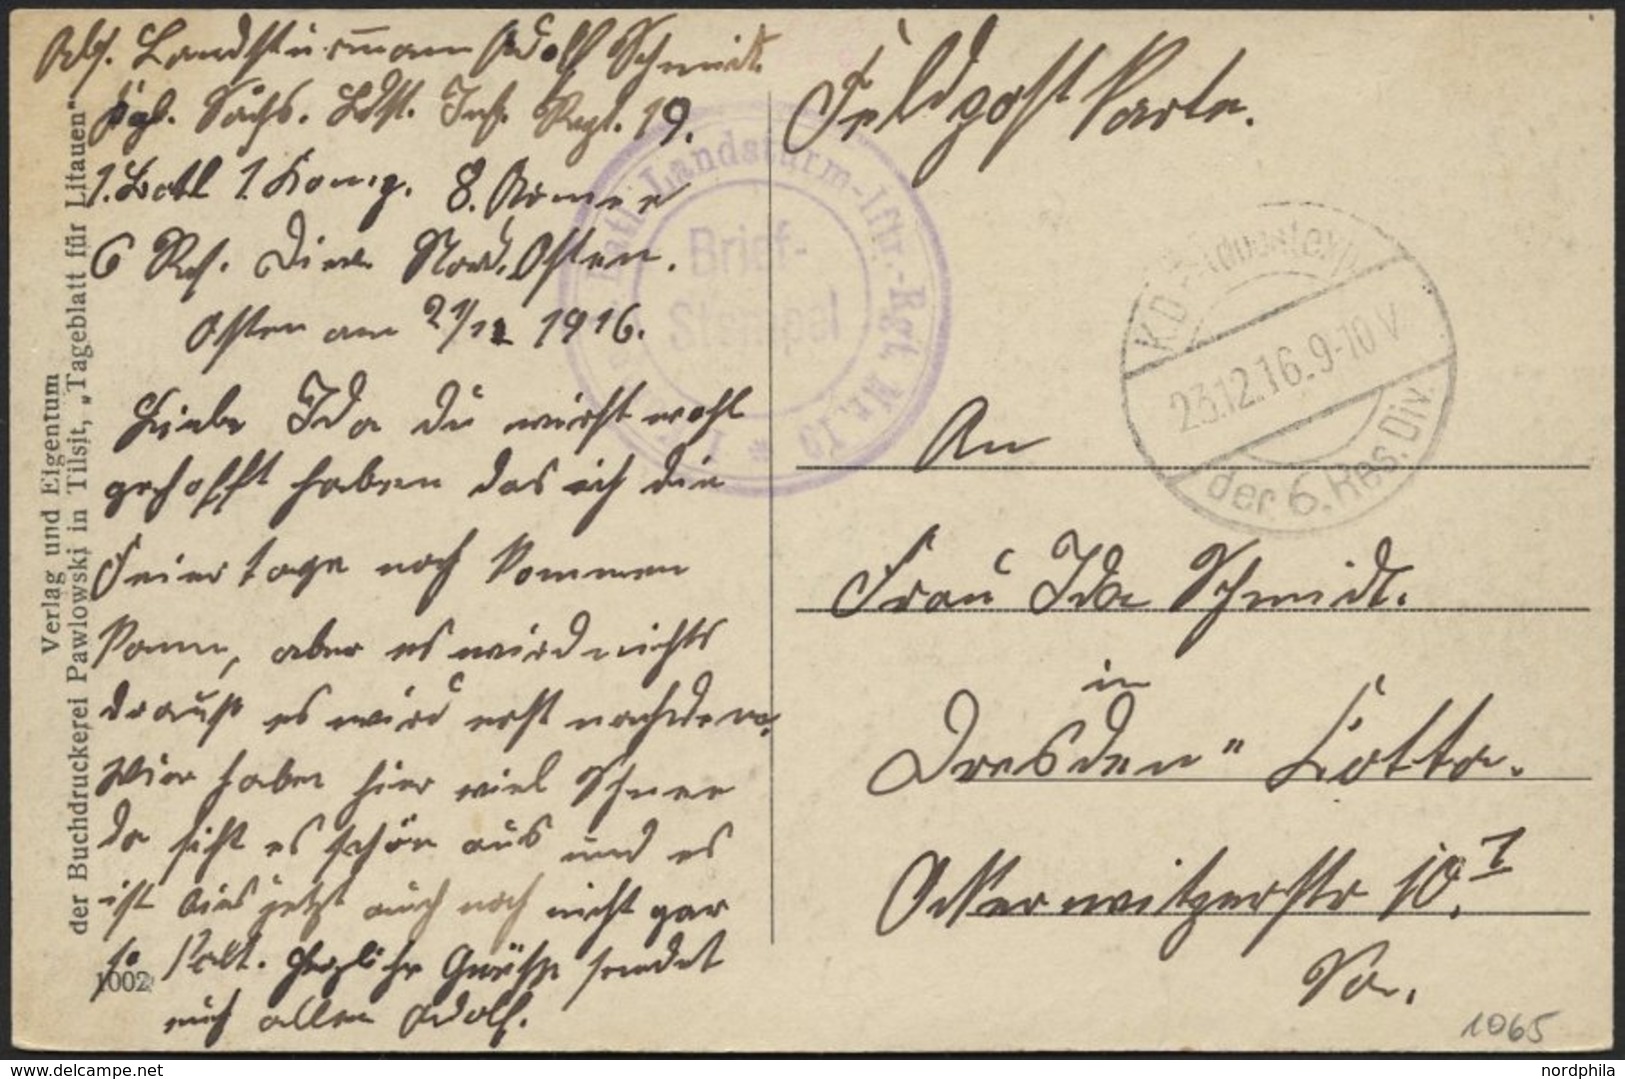 Abs. Landsturmmann Adolf Schmidt.
Kgl. Sächs. Ldst. Inf. Regt. 19.
1. Batl 1. Komp. 8. Armee
6 Res. Divi. Nord. Osten.
Osten am 21/12 1916.
Liebe Ida du wirst wohl
gehofft haben das ich die
Feiertage noch kommen
kann, aber es wird nichts
drauß es wird erst nachdem.
Wier haben hier viel Schnee
da siht es schön aus und es
ist bies jetzt auch noch nicht gar
so kalt. Herzliche Grüße sendet
euch allen Adolf.
Feldpost Karte.
An
Frau Ida Schmidt.
in
Dresden" Cotta.
Osterwitzerstr 10. I
Sa.
1065
Verlag und Eigentum
der Buchdruckerei Pawlowski in Tilsit, „Tageblatt für Litauen"
1002
Batl. Landsturm-Iftr.-Rgt. Nr. 19 *
Brief-
Stempel
K.D. Feldpostexp.
23.12.16.9-10 V.
der 6. Res. Div.
www.delcampe.net
nordphila